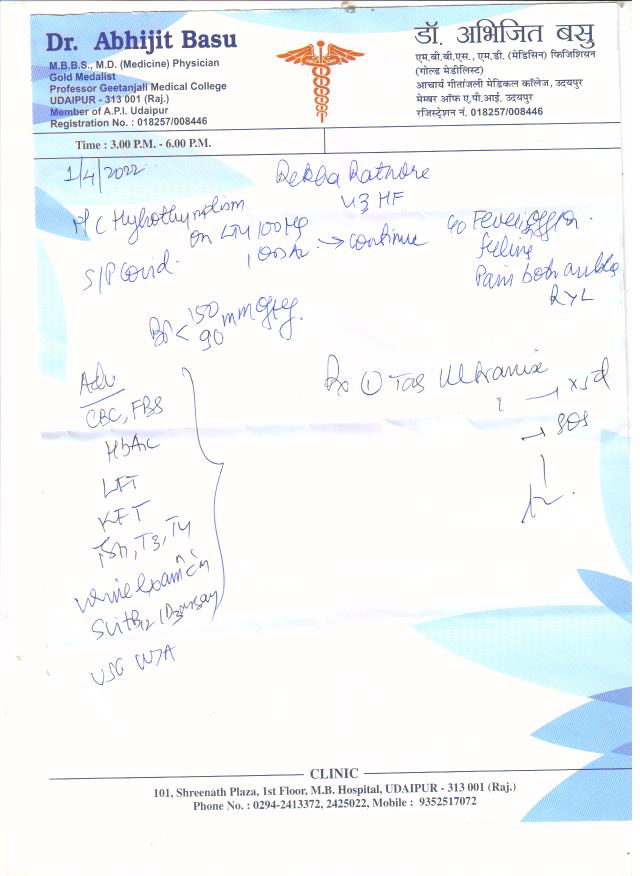 Dr. Abhijit Basu
M.B.B.S., M.D. (Medicine) Physician
Gold Medalist
Professor Geetanjali Medical College
UDAIPUR - 313 001 (Raj.)
Member of A.P.I. Udaipur
Registration No. : 018257/008446
डॉ. अभिजित बसु
एम.बी.बी.एस., एम.डी. (मेडिसिन) फिजिशियन
(गोल्ड मेडीलिस्ट)
आचार्य गीतांजली मेडिकल कॉलेज, उदयपुर
मेम्बर ऑफ ए.पी.आई. उदयपुर
रजिस्ट्रेशन नं. 018257/008446
Time : 3.00 P.M. - 6.00 P.M.
1/4/2022
Rekha Rathore
43 HF
on
100 → continue
S/P Covid.
Fever
feeling
Pain both ankles
R > L
BP < 150 mm
90
Adv
CBC, FBS
HbA1c
LFT
KFT
TSH, T3, T4
USG W/A
Rx ① Tab
→ SOS
CLINIC
101, Shreenath Plaza, 1st Floor, M.B. Hospital, UDAIPUR - 313 001 (Raj.)
Phone No. : 0294-2413372, 2425022, Mobile : 9352517072